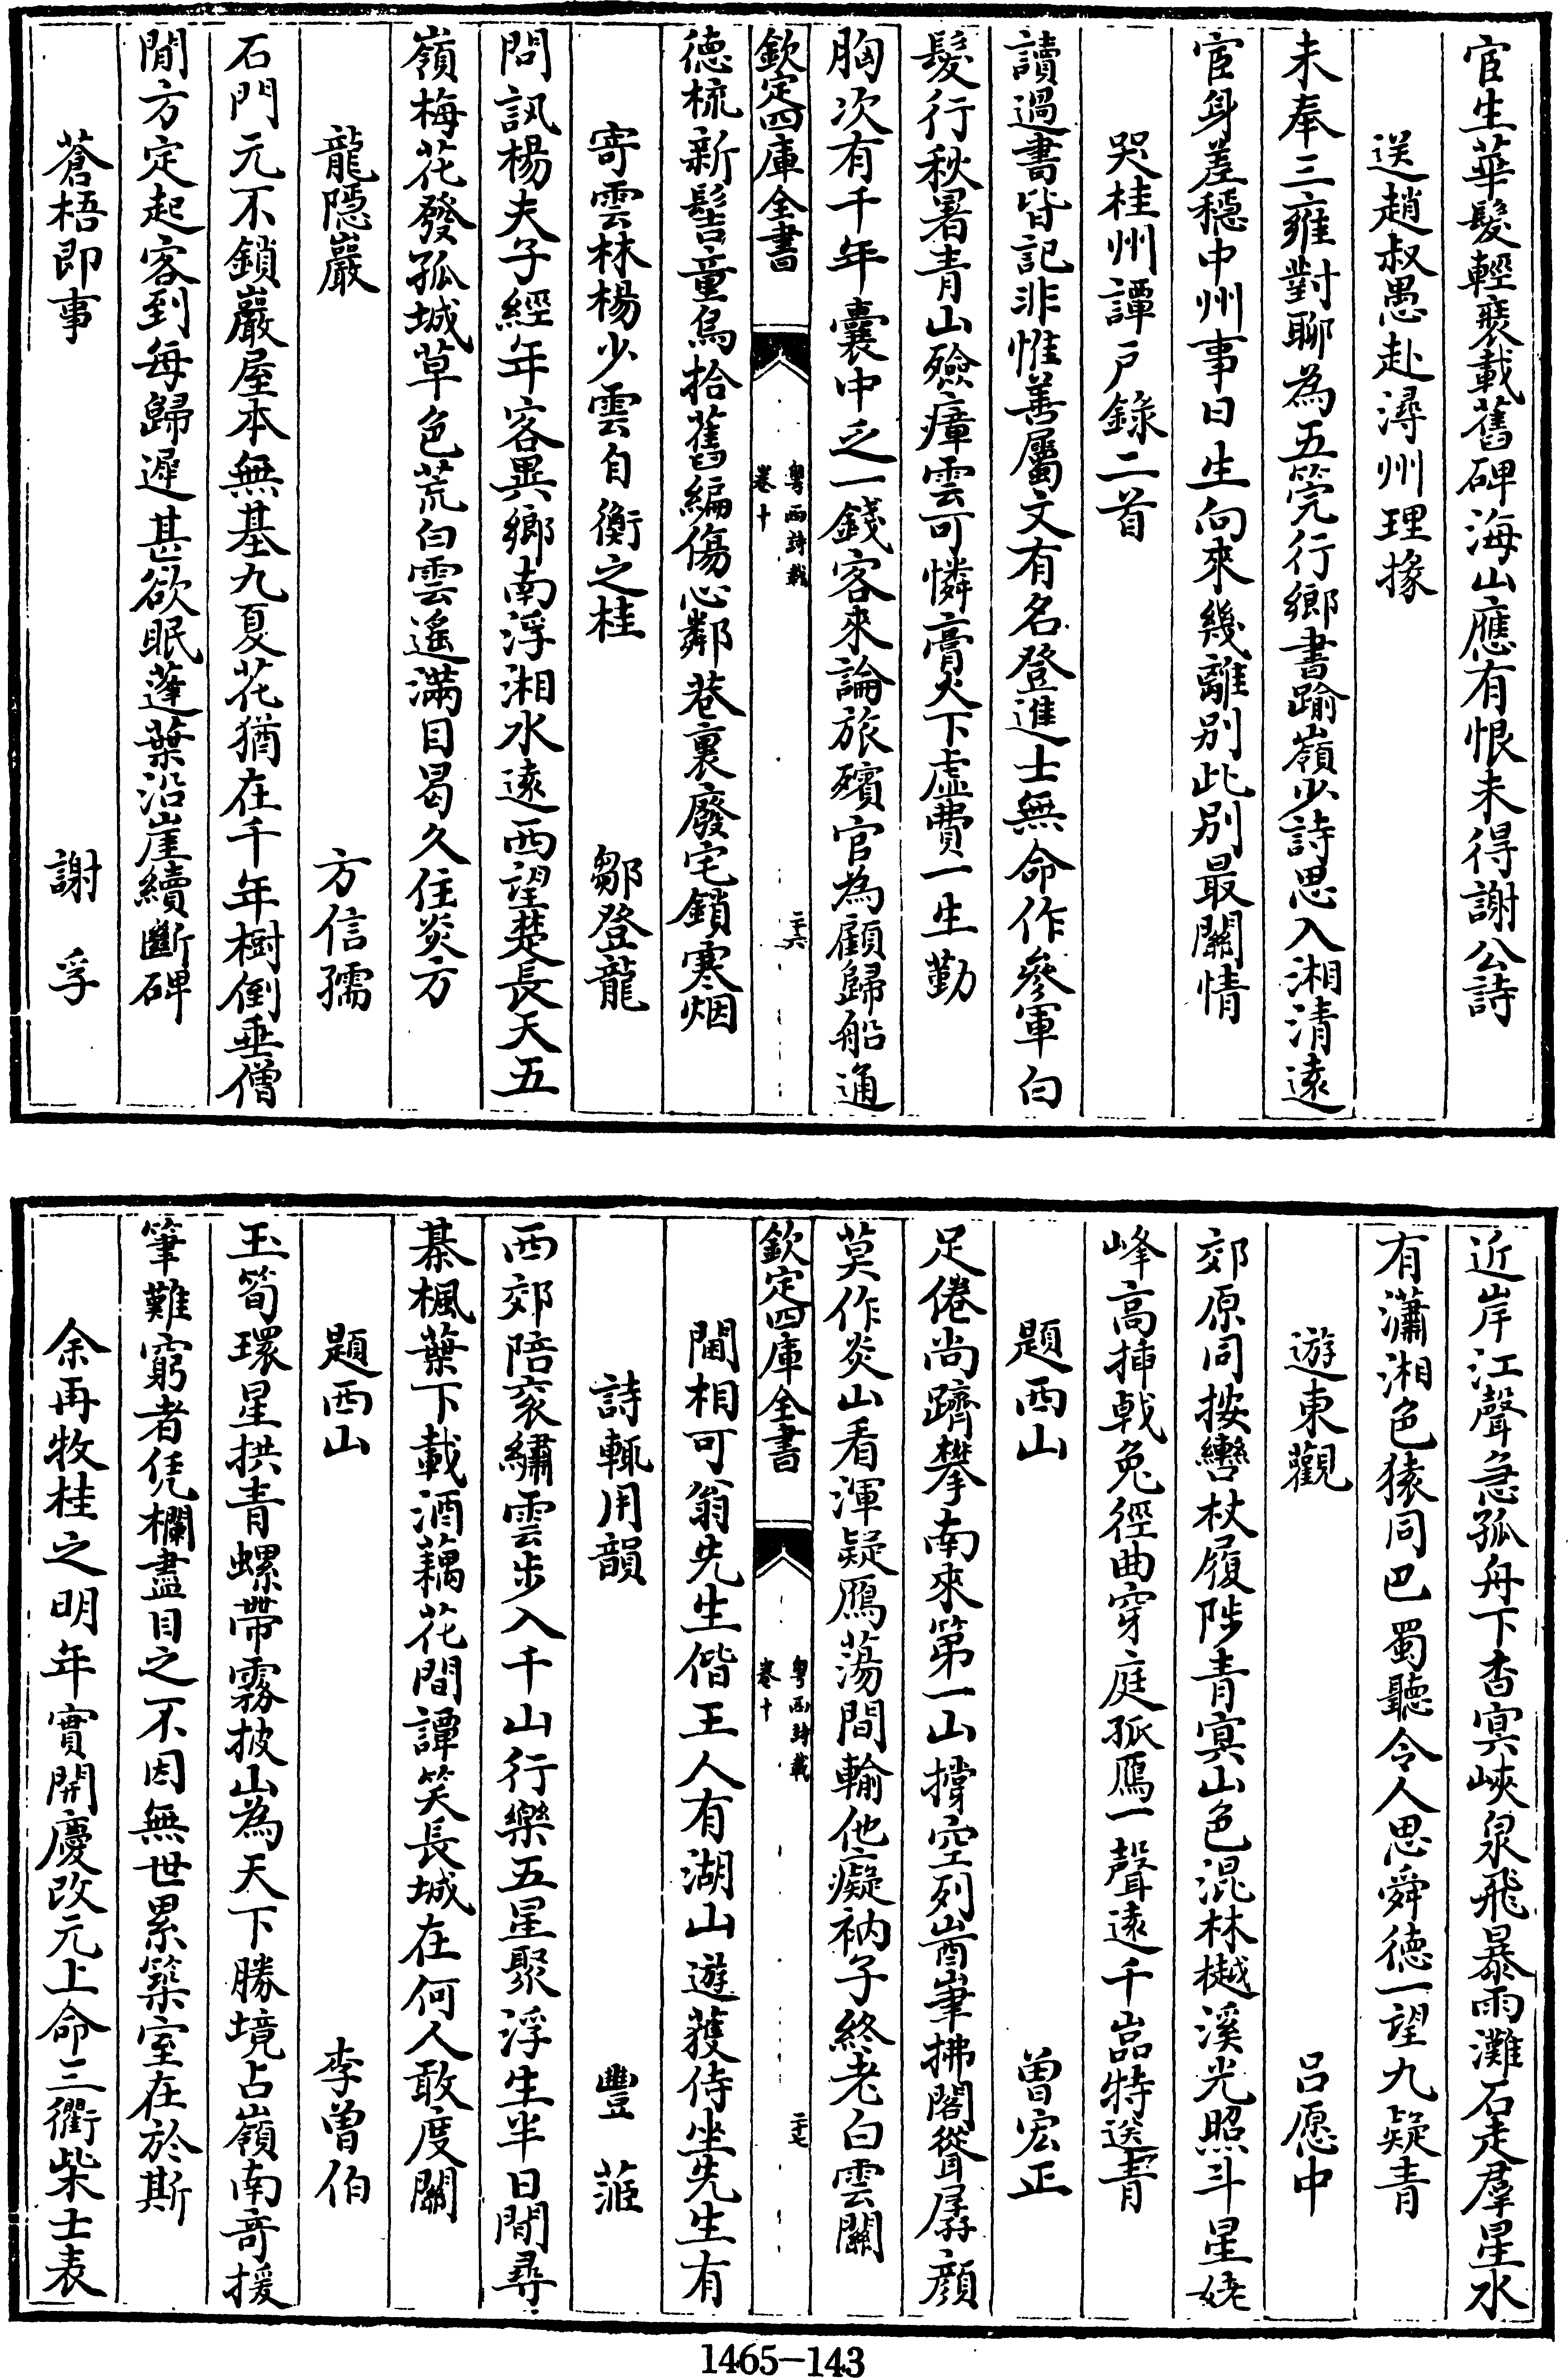 宦生華髮輕裘載舊碑海山應有恨未得謝公詩
送趙叔愚赴潯州理掾
未奉三雍對聊為五筦行鄉書踰嶺少詩思入湘清遠
宦身差穩中州事日生向來幾離別此別最關情
哭桂州譚戶錄二首
讀過書皆記非惟善屬文有名登進士無命作參軍白
髮行秋暑青山殮瘴雲可憐膏火下虛費一生勤
胸次有千年囊中乏一錢客來論旅殯官為顧歸船通
欽定四庫全書
粵西詩載
卷十
二十六
德梳新髻童烏拾舊編傷心鄰巷裏廢宅鎖寒烟
寄雲林楊少雲自衡之桂 鄒登龍
問訊楊夫子經年客異鄉南浮湘水遠西望楚長天五
嶺梅花發孤城草色荒白雲遙滿目曷久住炎方
龍隱巖 方信孺
石門元不鎖巖屋本無基九夏花猶在千年樹倒垂僧
閒方定起客到每歸遲甚欲眠蓬葉沿崖續斷碑
蒼梧即事 謝孚
近岸江聲急孤舟下杳冥峽泉飛暴雨灘石走羣星水
有瀟湘色猿同巴蜀聽令人思舜德一望九疑青
遊東觀 呂愿中
郊原同按轡杖履陟青冥山色混林樾溪光照斗星姥
峰高插戟兔徑曲穿庭孤鴈一聲遠千嵓特送青
題西山 曾宏正
足倦尚躋攀南來第一山撐空列崷崒拂閣聳孱顏
莫作炎山看渾疑鴈蕩間輸他癡衲子終老白雲關
欽定四庫全書
粵西詩載
卷十
二十七
閫相可翁先生偕王人有湖山遊獲侍坐先生有
詩輒用韻 豐𦶜
西郊陪衮繡雲步入千山行樂五星聚浮生半日閒尋
棊楓葉下載酒藕花間譚笑長城在何人敢度關
題西山 李曾伯
玉筍環星拱青螺帶霧披山為天下勝境占嶺南奇援
筆難窮者凭欄盡目之不因無世累築室在於斯
余再牧桂之明年實開慶改元上命三衢柴士表
1465-143